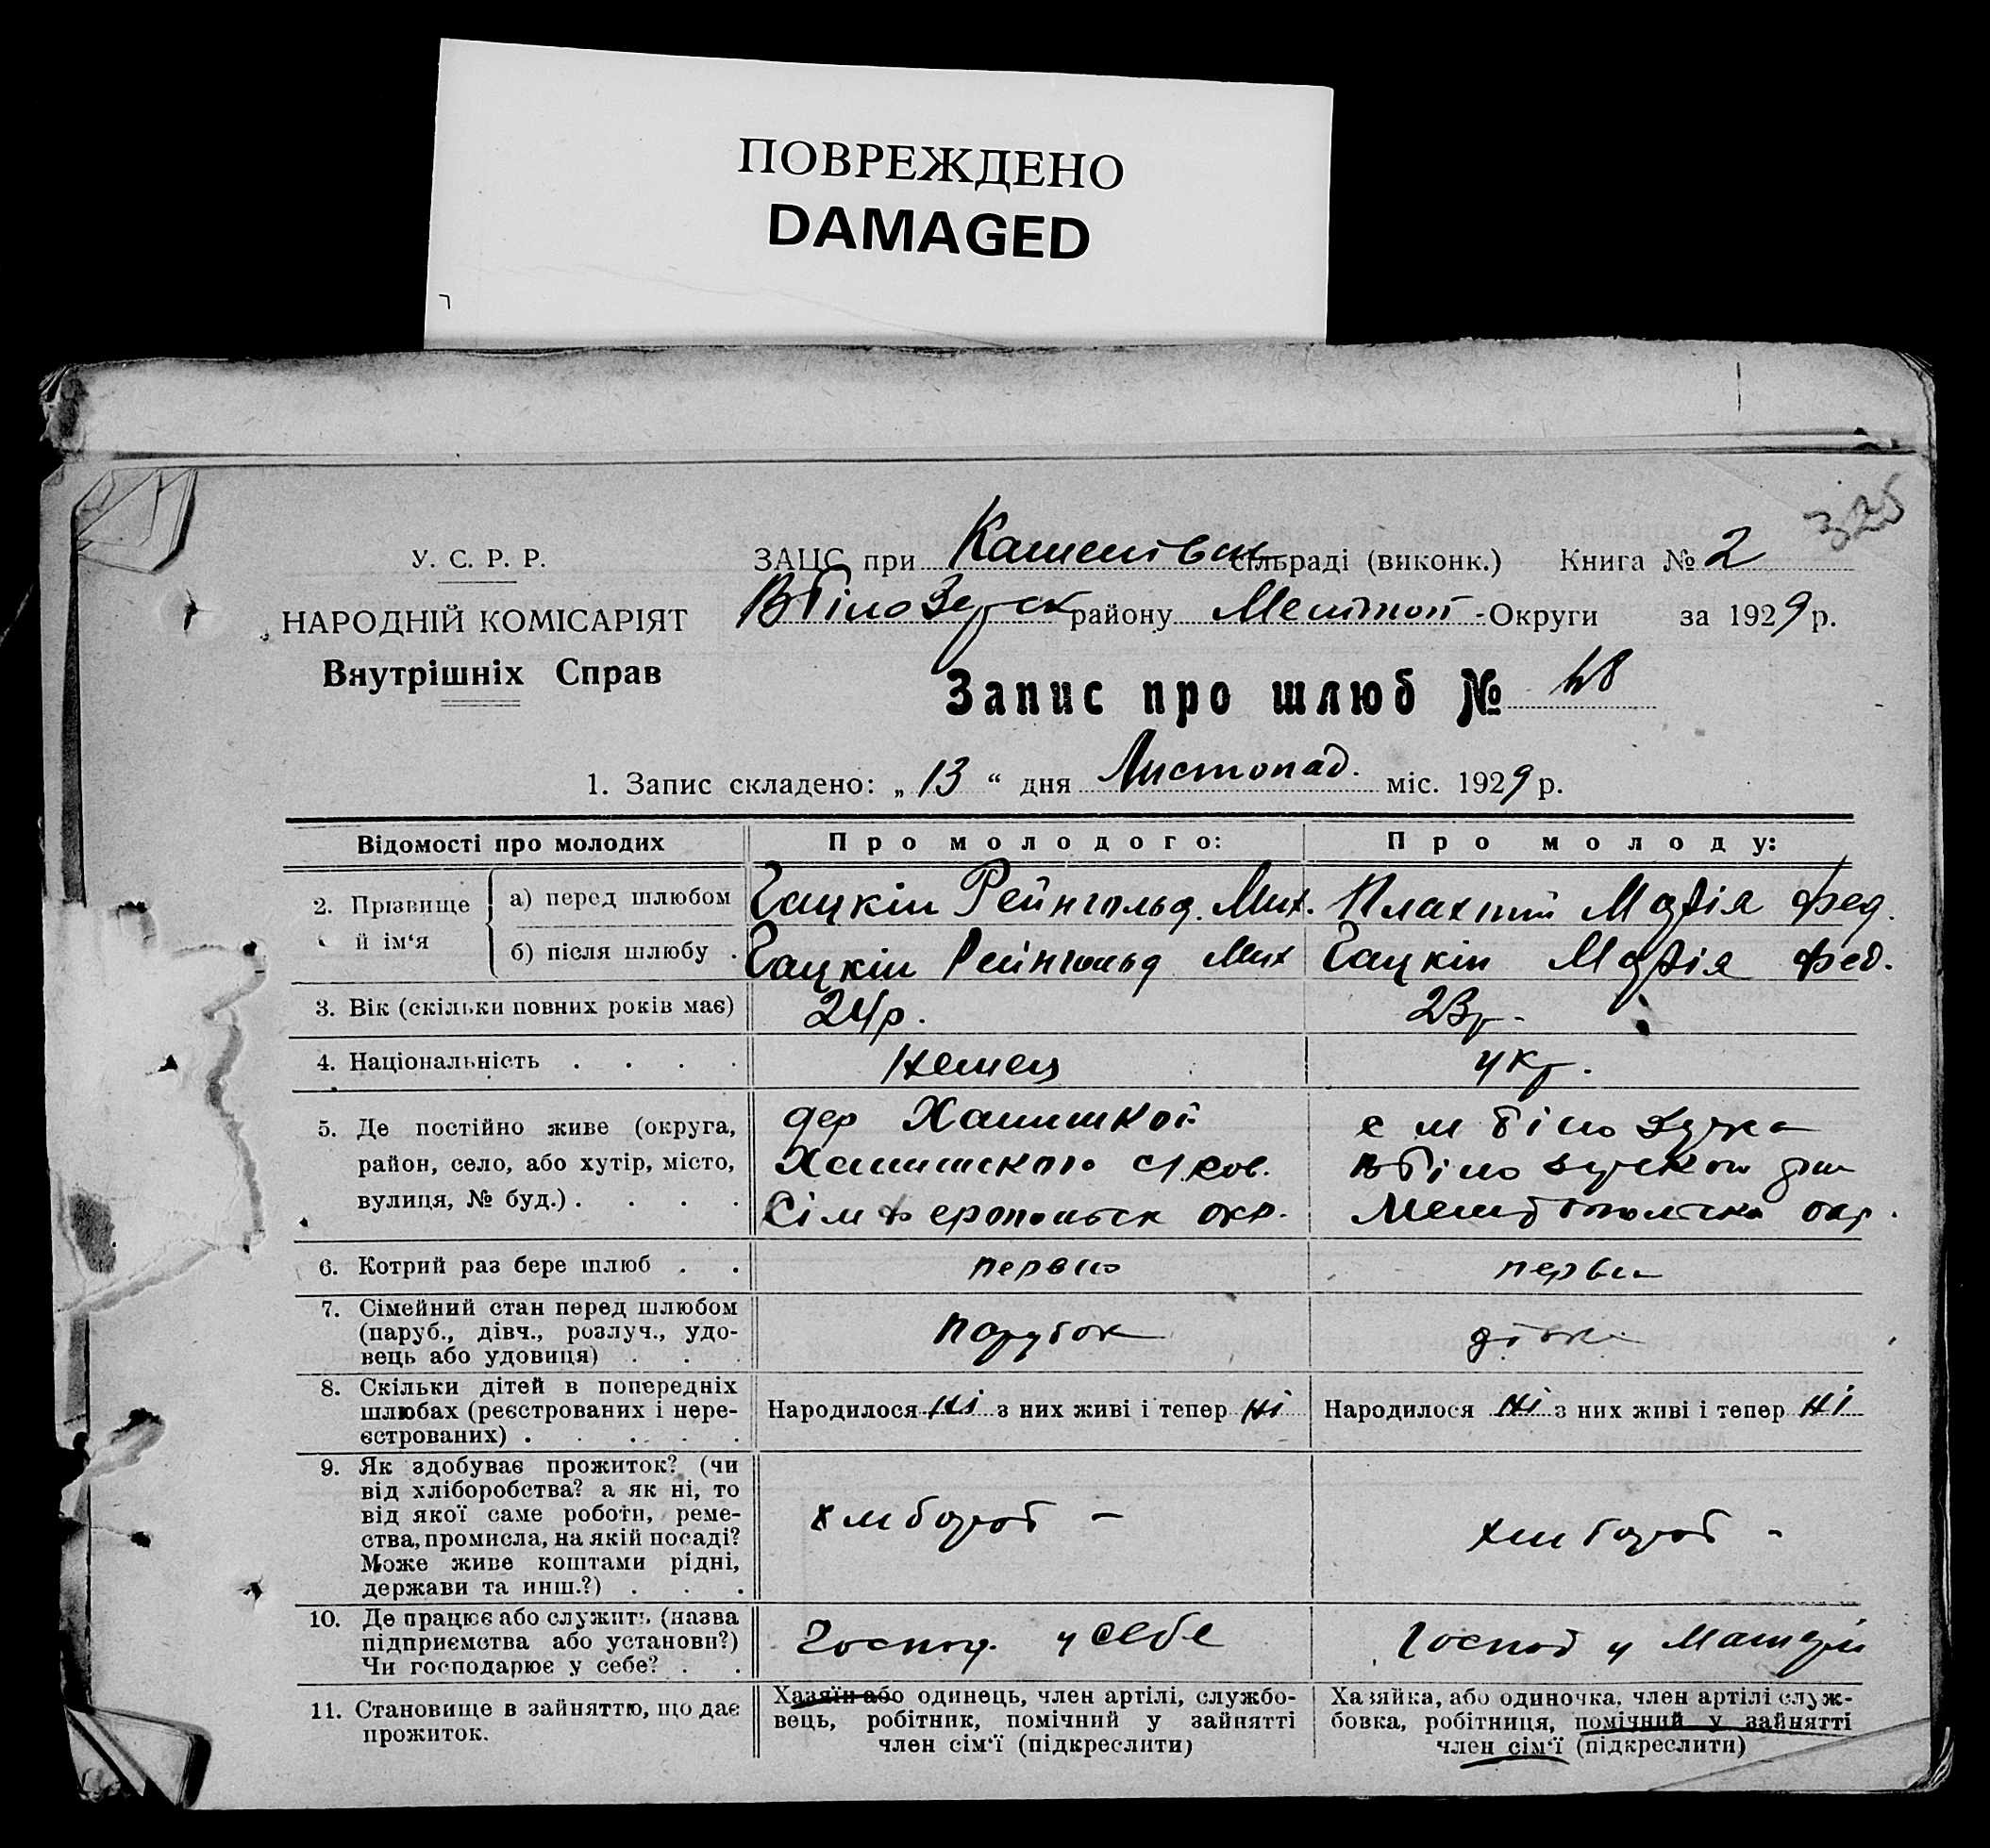 ПОВРЕЖДЕНО
DAMAGED
325
У. С. Р. Р.
ЗАЦС при сільраді (виконк.) Книга № 2
НАРОДНІЙ КОМІСАРІЯТ
району Округи за 1929 р.
Внутрішніх Справ
Запис про шлюб № 48
1. Запис складено: „ 13 “ дня Листопад. міс. 1929 р.
Відомості про молодих Про молодого: Про молоду:
2. Прізвище й ім‘я
а) перед шлюбом Гацкін Рейнгольд. Мих. Марія Фед.
б) після шлюбу . Гацкін Рейнгольд Мих Гацкін Марія Фед.
3. Вік (скільки повних років має) 24р. 23р.
4. Національність . . . . Немец укр.
5. Де постійно живе (округа, дер
район, село, або хутір, місто,
вулиця, № буд.) . . . . Сімферопольск окр. окр.
6. Котрий раз бере шлюб . .
7. Сімейний стан перед шлюбом
(паруб., дівч., розлуч., удо- парубок
вець або удовиця) . . .
8. Скільки дітей в попередніх
шлюбах (реєстрованих і нере- Народилося ні з них живі і тепер ні Народилося ні з них живі і тепер ні
єстрованих) . . . . .
9. Як здобуває прожиток? (чи
від хліборобства? а як ні, то
від якої саме роботи, реме-
ства, промисла, на якій посаді?
Може живе коштами рідні,
держави та инш.?) . . .
10. Де працює або служить (назва
підприємства або установи?) Господ. у себе Господ у
Чи господарює у себе? . .
11. Становище в зайняттю, що дає
прожиток.
Хазяїн або одинець, член артілі, службо-
вець, робітник, помічний у зайнятті
член сім‘ї (підкреслити)
Хазяйка, або одиночка, член артілі служ-
бовка, робітниця, помічний у зайнятті
член сім‘ї (підкреслити)